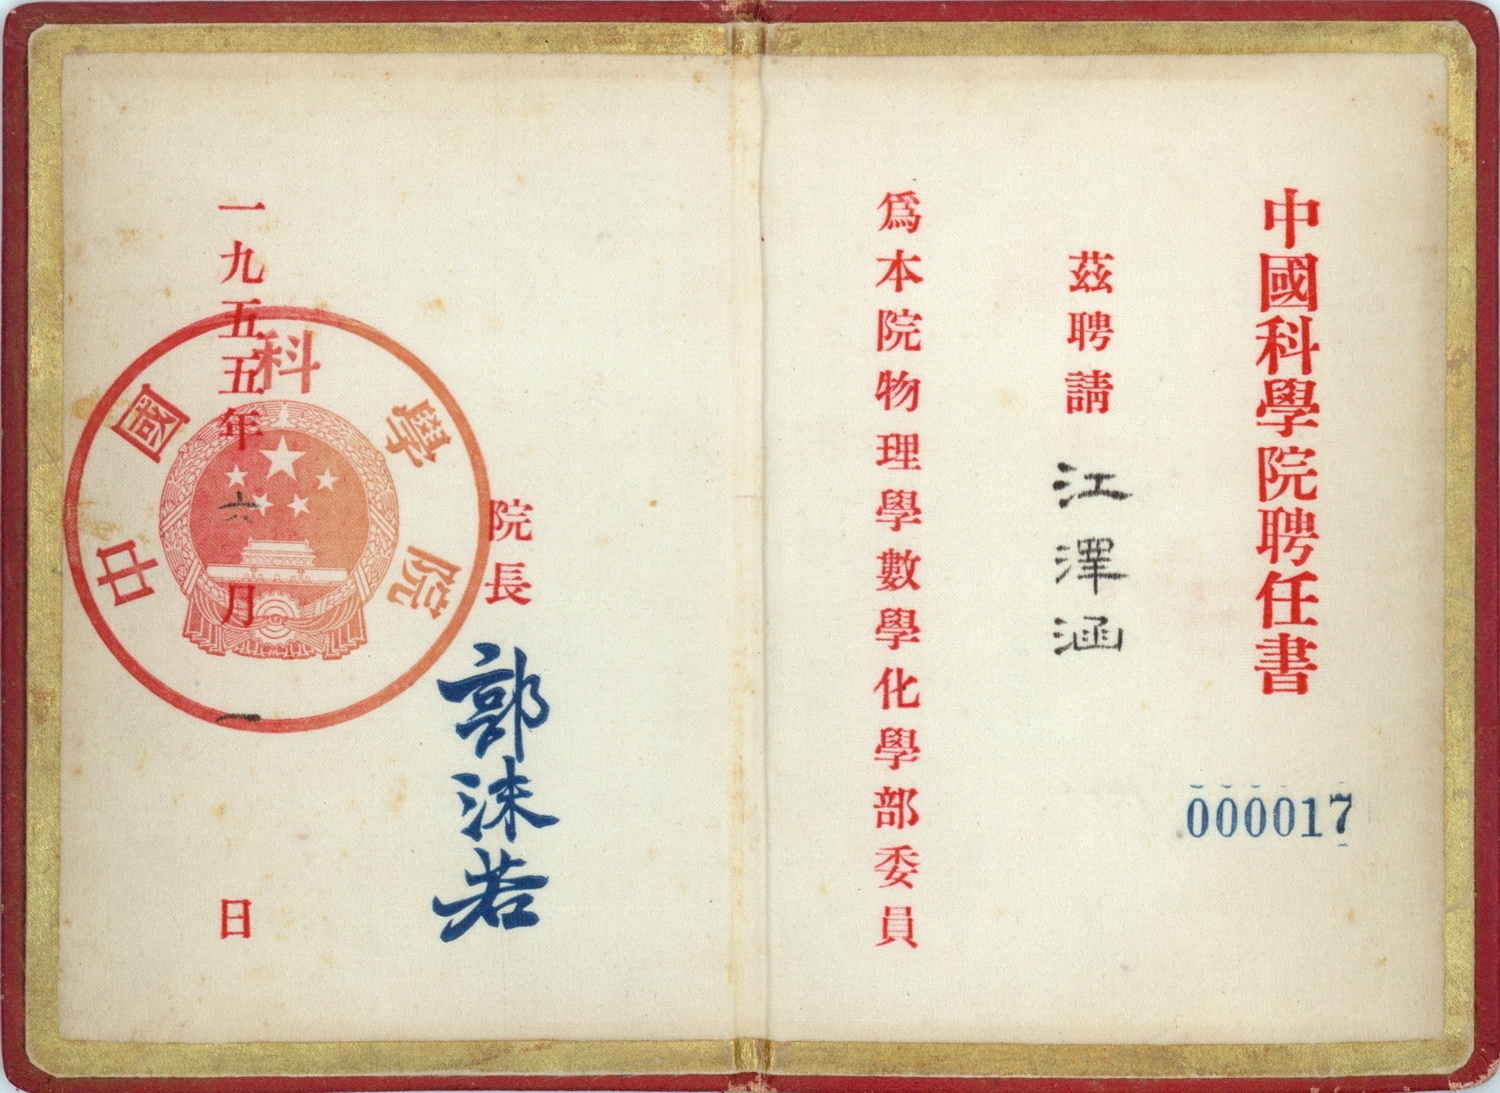 中國科學院聘任書
000017
茲聘請 江澤涵
爲本院物理學數學化學部委員
院長 郭沫若
一九五五年六月一日
中國科學院